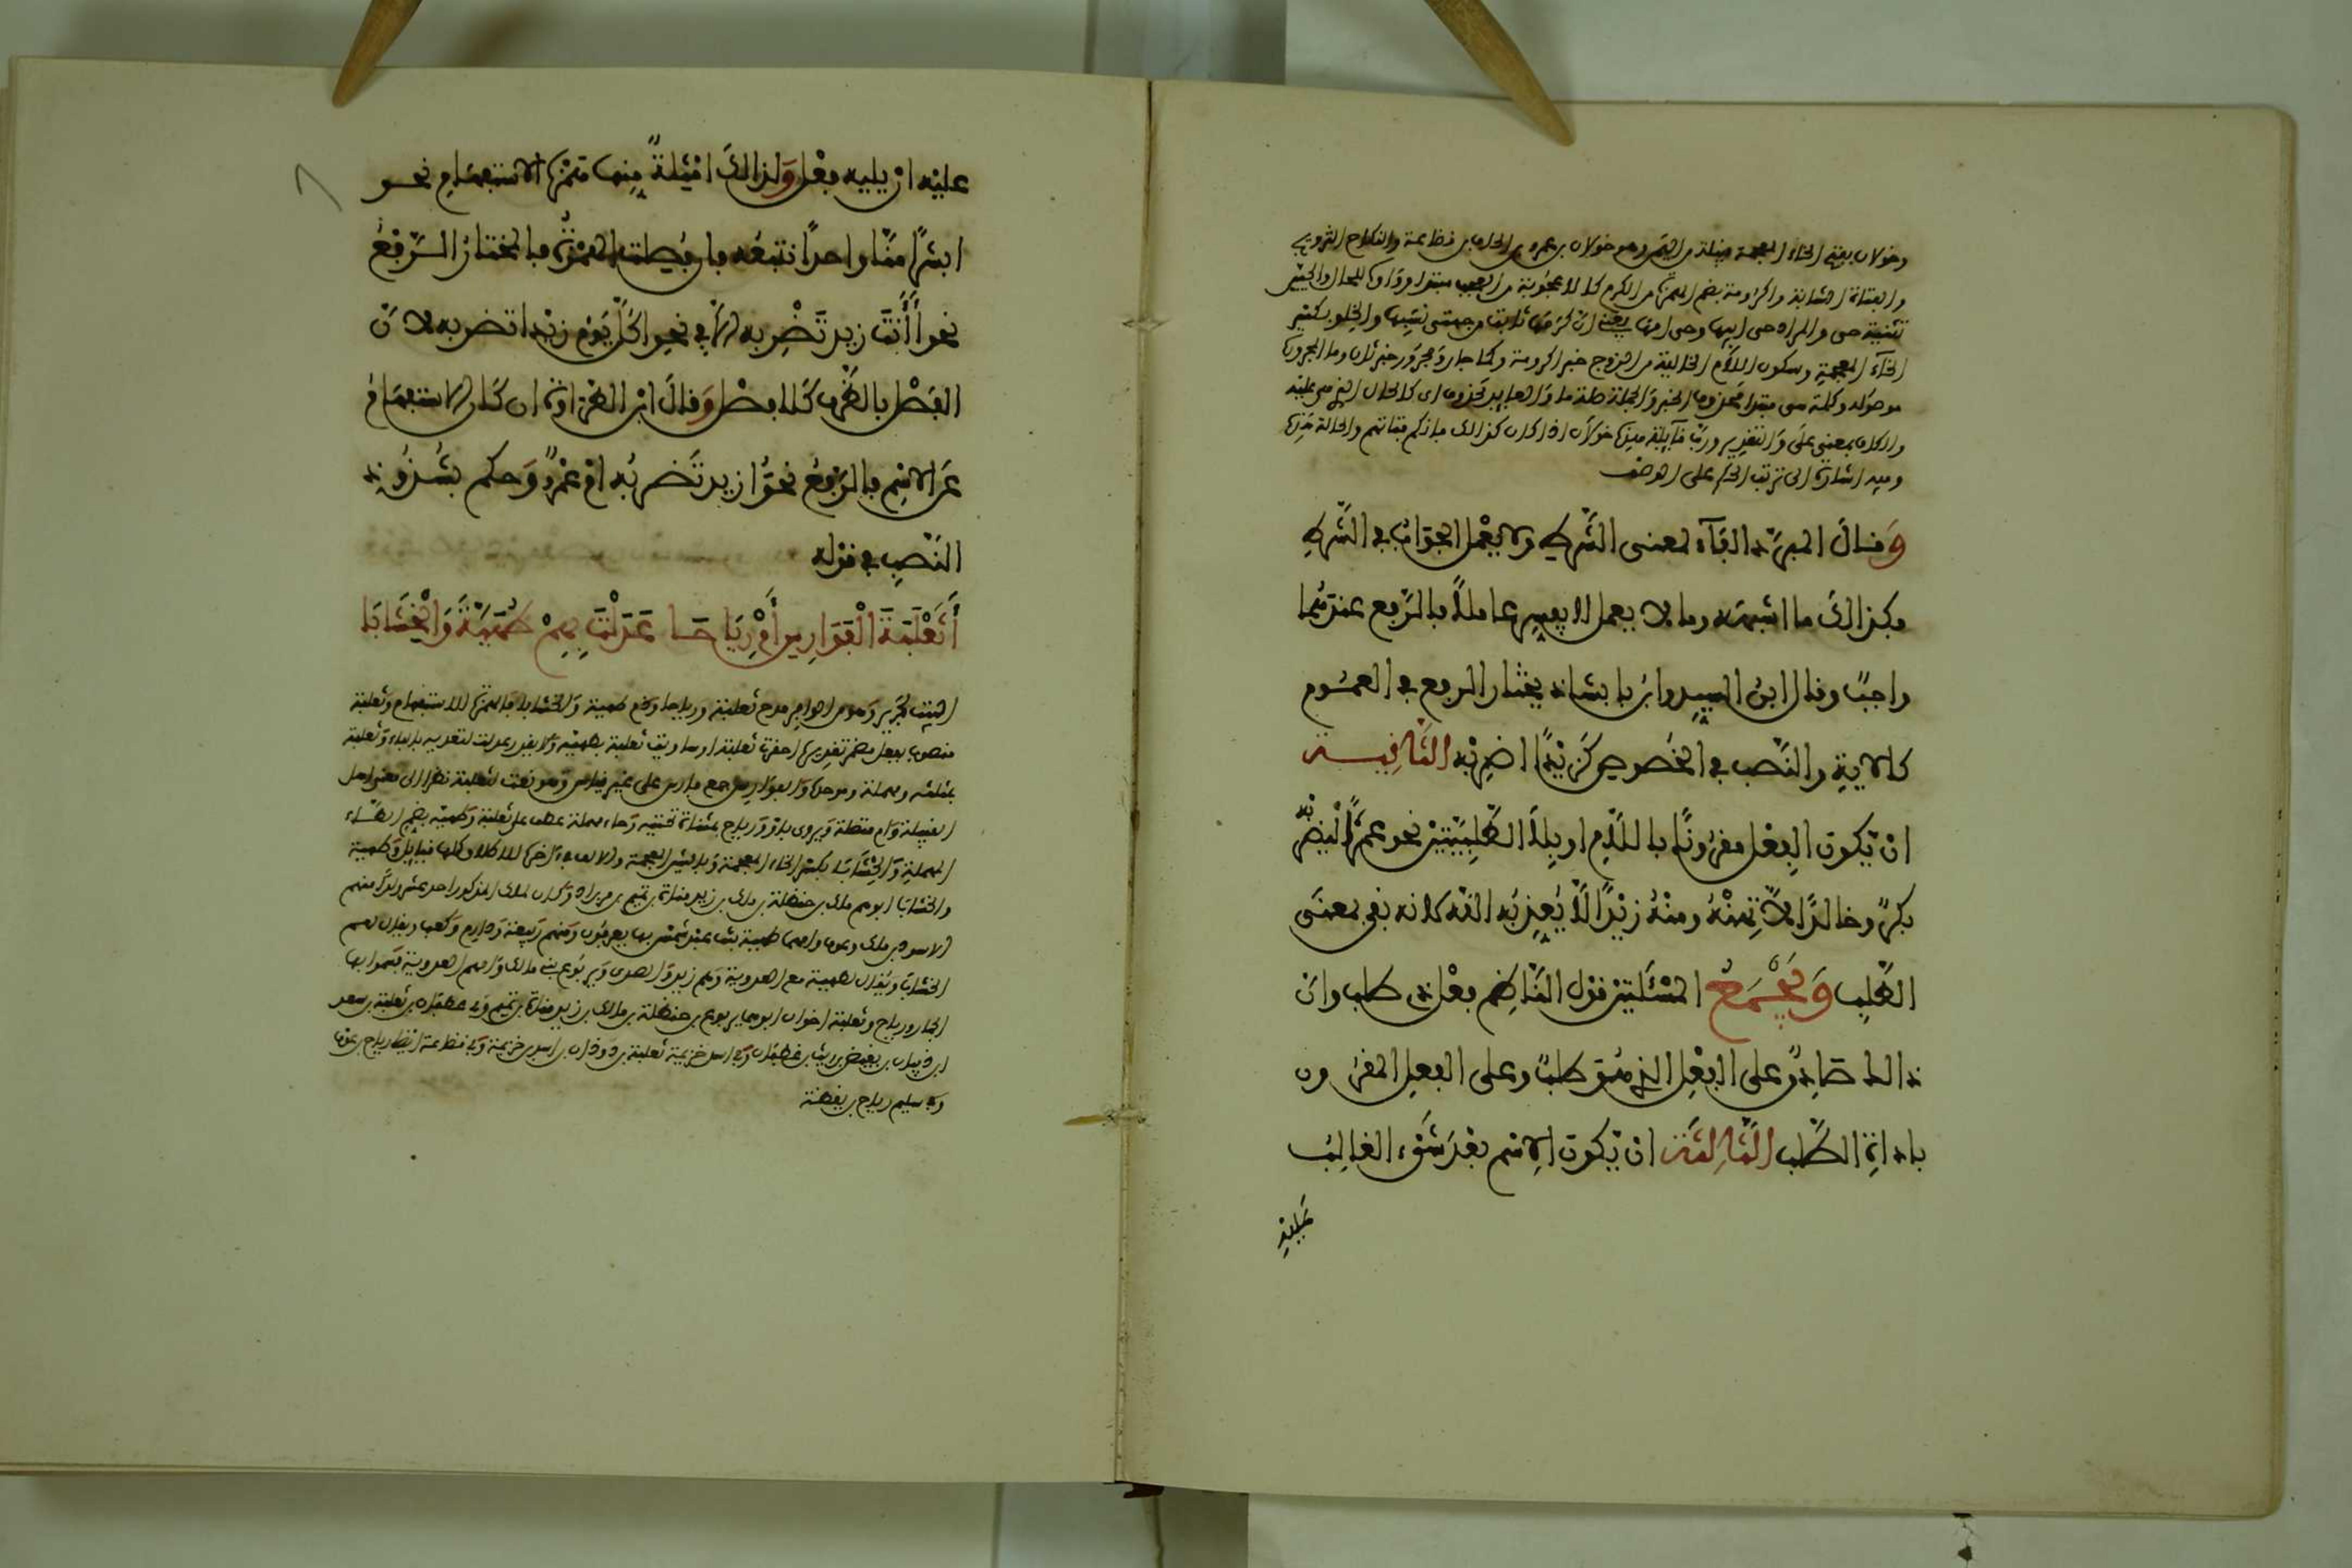 وخولان بفتح الخاء المعجمة قبيلة من اليمن وهو خولان بن عمرو بن الحاف بن قضاعة والنكاح التزويج
والفتاة الشابة واكرومة بضم الهمزة من الكرم كالاعجوبة من العجب مبتدا وواوه للحال والحيين
تثنية حي والمراد حي ابيها وحي امها يعني ان كرمها ثابت من جهتي نسبها والخلو بكسر
الخاء المعجمة وسكون اللام الخالية من الزوج خبر اكرومة وكما جار ومجرور خبر ثان وما المجرورة
موصولة وكلمة هي مبتدا محذوف الخبر والجملة صلة ما والعايد محذوف اي كالحال الذي هي عليه
والكاف بمعنى على والتقدير ورب قايلة هذه خولان اذا كان كذالك فانكح فتاتهم والحالة هذه
وفيه اشارة الى ترتب الحكم على الوصف
وقال المبرد الفاء لمعنى الشرط ولا يعمل الجواب في الشرط
فكذالك ما اشبهه وما لا يعمل لا يفسر عاملا فالرفع عندهما
واجب وقال ابن السيد وابن بابشاذ يختار الرفع في العموم
كالاية والنصب في الخصوص كزيدا اضربه الثانية
ان يكون الفعل مقرونا باللام او بلا الطلبيتين نحو عمرا ليضربه
بكر وخالدا لا تهنه ومنه زيدا لا يعذبه الله لانه نفي بمعنى
الطلب ويجمع المسئلتين قول الناظم فعل ذي طلب وان
ذالك صادق على الفعل الذي هو طلب وعلى الفعل المقرون
باداة الطلب الثالثة ان يكون الاسم بعد شيء الغالب
عليه ان يليه فعل ولذالك امثلة منها همزة الاستفهام نحو
ابشرا منا واحدا نتبعه فان فصلت الهمزة فالمختار الرفع
نحو اانت زيد تضربه الا في نحو اكل يوم زيدا تضربه لان
الفصل بالظرف كلا فصل وقال ابن الطراوة ان كان الاستفهام
عن الاسم فالرفع نحو ازيد تضربه ام عمرو وحكم بشذوذ
النصب في قوله
أثعلبة الفوارس أم رياحا عدلت بهم طهية والخشابا
البيت لجرير وهو من الوافر مدح ثعلبة ورياحا وذم طهية والخشابا فالهمزة للاستفهام وثعلبة
منصوب بفعل مضمر تقديره احقرت ثعلبة او ساويت ثعلبة بطهية ولا يقدر عدلت لتعديه بالباء وثعلبة
بمثلثة ومهملة وموحدة والفوارس جمع فارس على غير قياس وهو نعت لثعلبة نظرا الى معنى اصل
القبيلة وام متصلة ويروى باو ورياح بمثناة تحتية وحاء مهملة عطف على ثعلبة وطهية بضم الطاء
المهملة والخشابا بكسر الخاء المعجمة وبالشين المعجمة والالف في اخرها للاطلاق وكلها قبايل وطهية
والخشابا ابوهم ملك بن حنظلة بن ملك بن زيد مناة بن تميم بن مر بن اد وكان لملك المذكور احد عشر ولدا منهم
الاسود بن ملك وعوف وامهما طهية بنت عبد شمس بها يعرفون ومنهم ربيعة ودارم وكعب ويقال لهم
الخشاب ويقال لطهية مع العدوية وهم زيد والصدي ويربوع بني مالك وامهم العدوية فسموا بها
الجمار ورياح وثعلبة اخوان ابوهما يربوع بن حنظلة بن مالك بن زيد مناة بن تميم وفي غطفان ثعلبة بن سعد
ابن ذبيان بن بغيض بن ريث بن غطفان وفي اسد خزيمة ثعلبة بن دودان بن اسد بن خزيمة وفي قضاعة ايضا رياح بن عوف
وفي سليم رياح بن يقظة